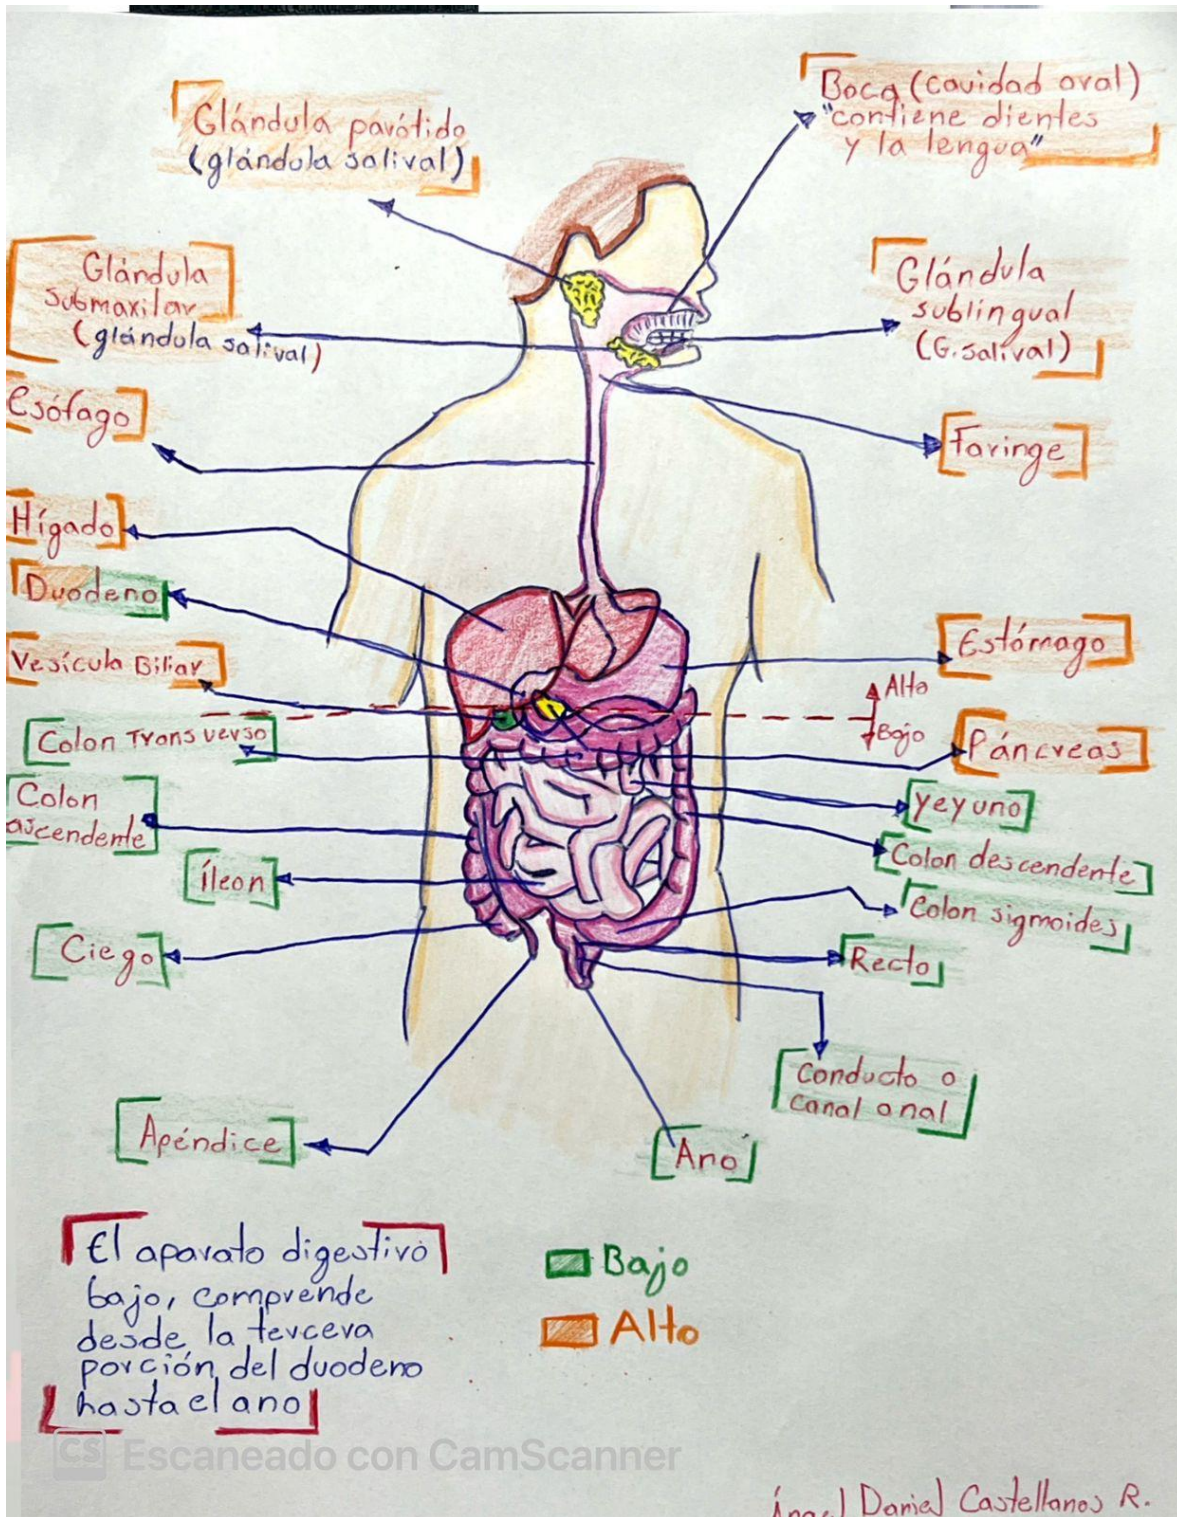 Boca (cavidad oral)
"contiene dientes
y la lengua"
Glándula parótida
(glándula salival)
Glándula
submaxilar
(glándula salival)
Glándula
sublingual
(G. salival)
Esófago
Faringe
Hígado
Duodeno
Estómago
Vesícula Biliar
Alto
Bajo
Colon Transverso
Páncreas
Colon
ascendente
yeyuno
Colon descendente
Íleon
Colon sigmoides
Ciego
Recto
Conducto o
canal anal
Apéndice
Ano
El aparato digestivo
bajo, comprende
desde la tercera
porción del duodeno
hasta el ano
Bajo
Alto
CS Escaneado con CamScanner
Ángel Daniel Castellanos R.